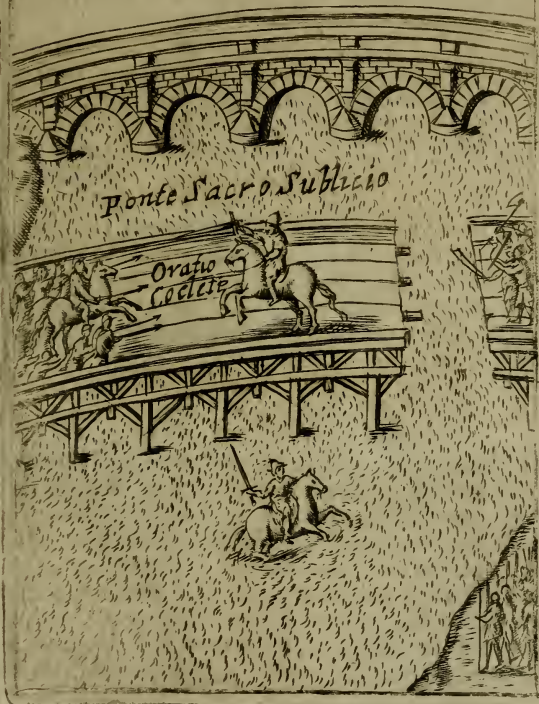 Ponte Sacro Sublicio
Oratio
Coclete